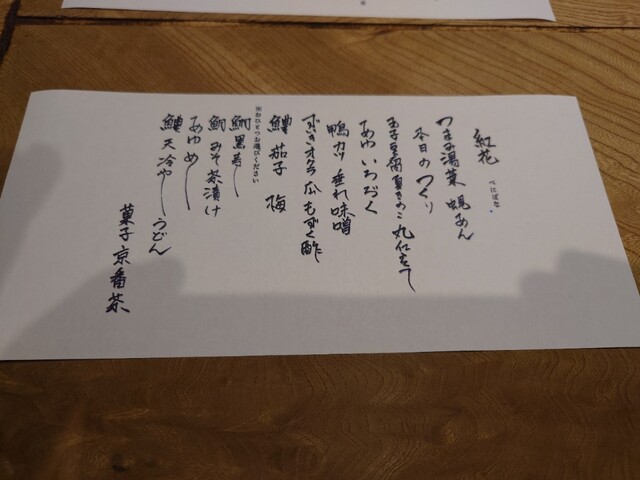 紅花
べにばな
つまみ湯葉 蜆あん
本日のつくり
玉子豆腐 夏きのこ 丸仕立て
あゆ いちぢく
鴨カツ 垂れ味噌
ずいき オクラ 瓜 もずく酢
鱧 茄子 梅
※おひとつお選びください
鯛黒寿し
鯛みそ茶漬け
あゆめし
鱧天冷やしうどん
菓子 京番茶